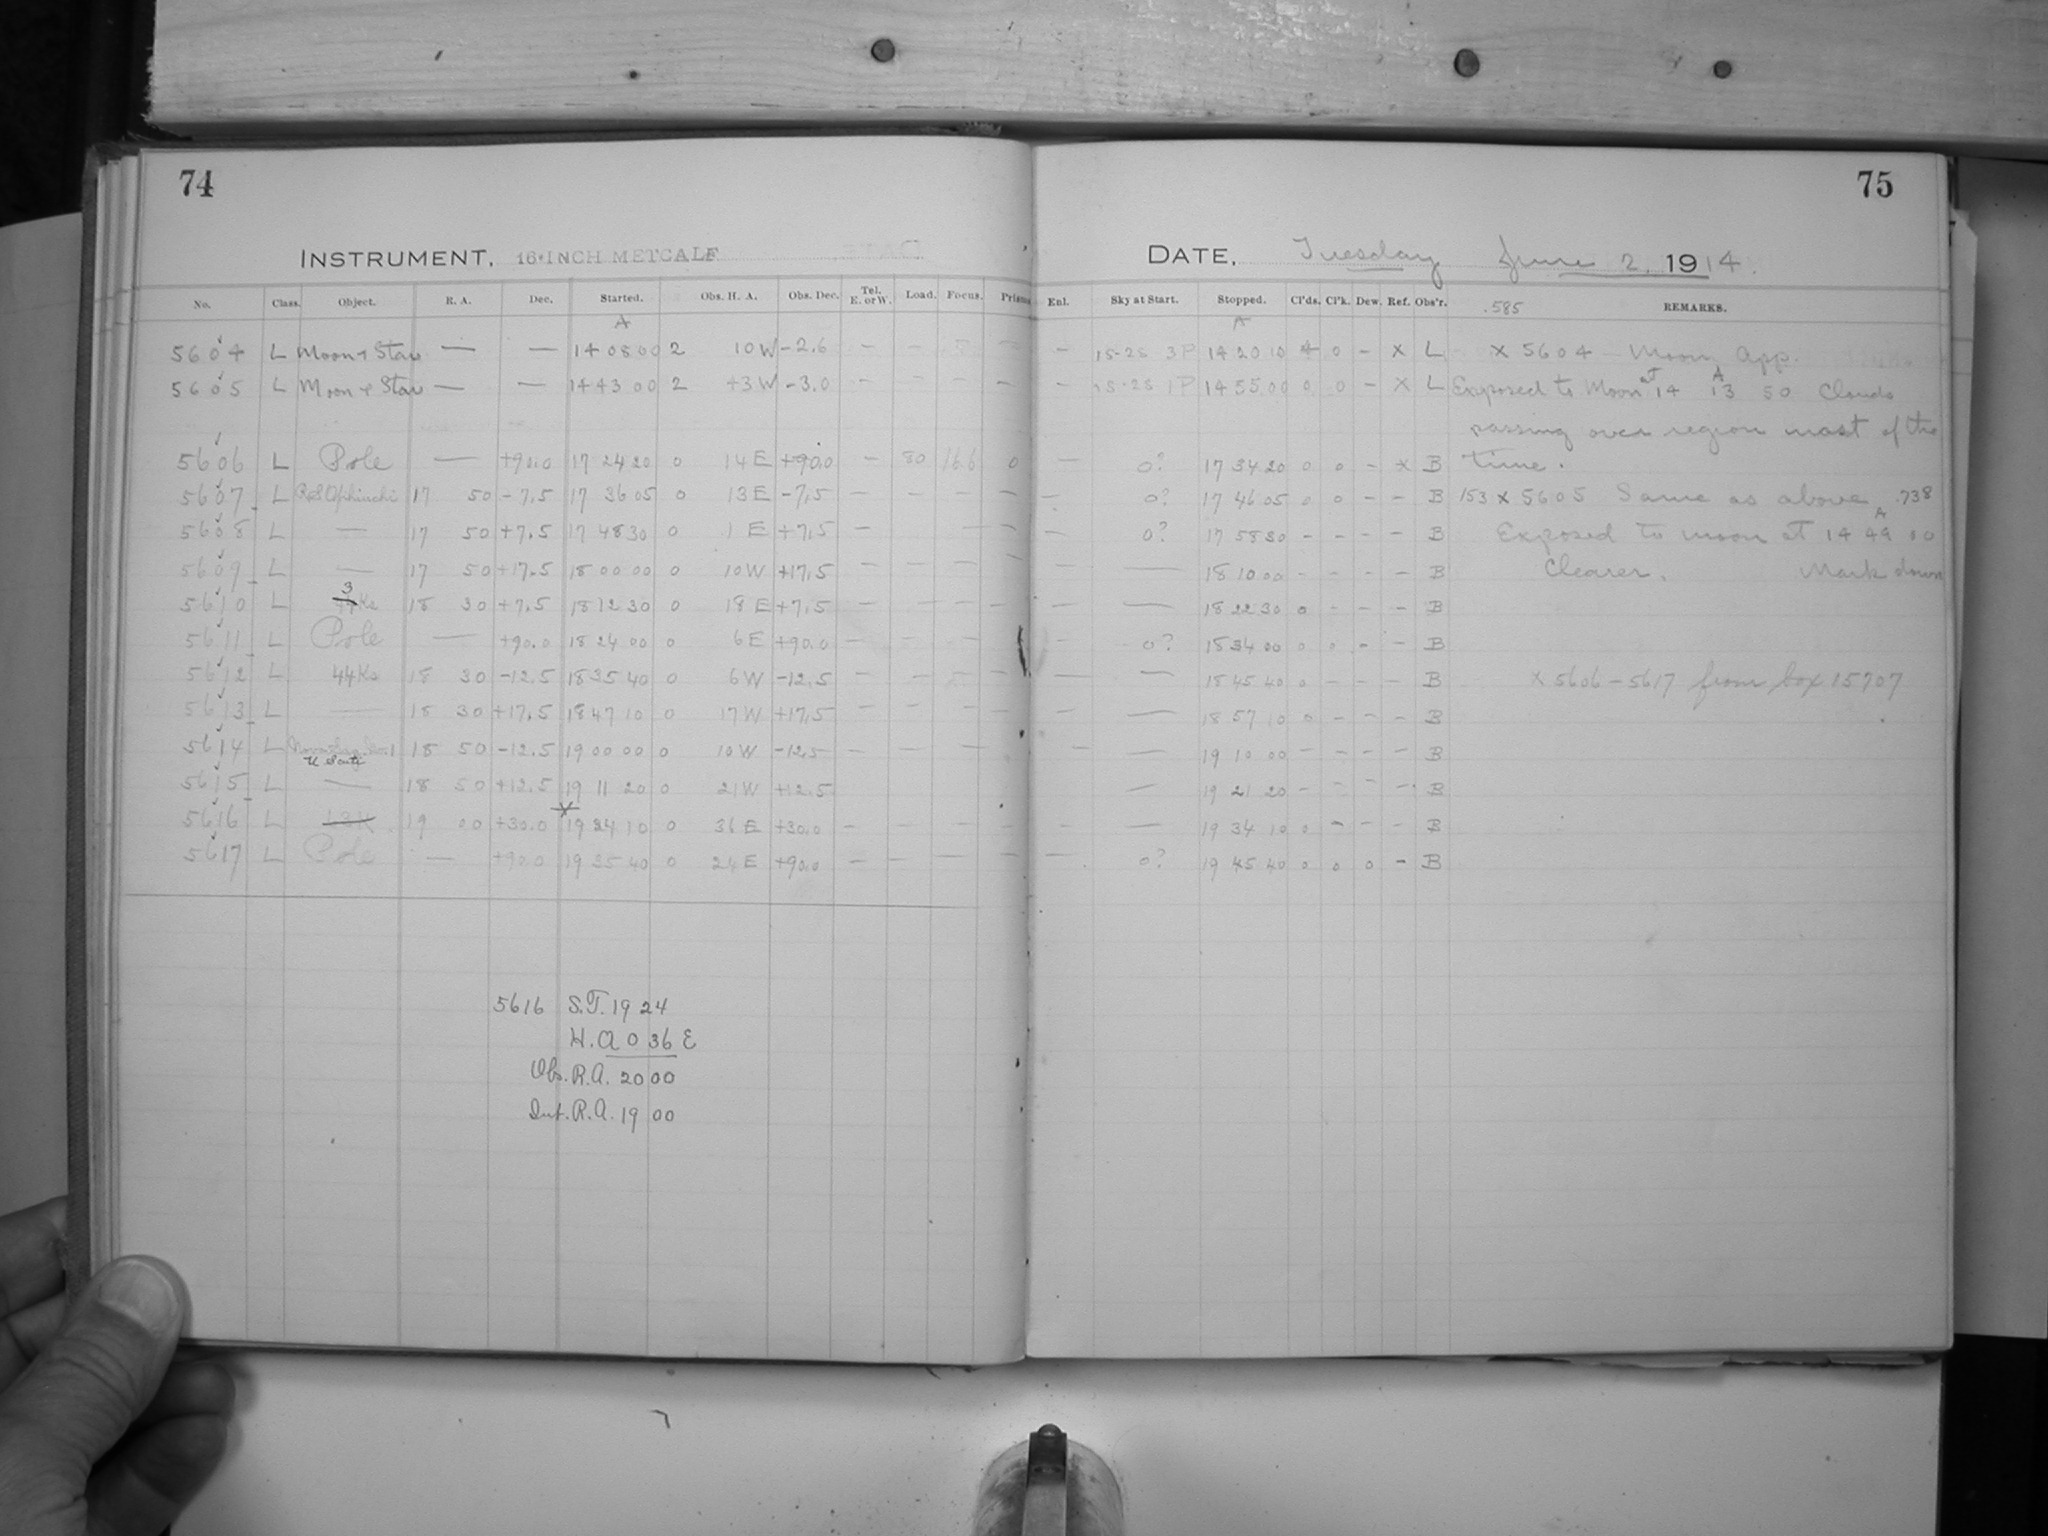 74
INSTRUMENT, 16-INCH METCALF
No. Class. Object. R. A. Dec. Started. Obs. H. A. Obs. Dec. Tel. E. or W. Load. Focus. Prism
A
5604 L Moon + Stars — — 14 08 00 2 10 W -2.6 — — —
5605 L Moon + Stars — — 14 43 00 2 43 W -3.0 — — — —
5606 L Pole — +90.0 17 24 20 0 14 E +90.0 — 80 16.6 0
5607 L RS Ophiuchi 17 50 -7.5 17 36 05 0 13 E -7.5 — — — —
5608 L — 17 50 +7.5 17 48 30 0 1 E +7.5 — — —
5609 L — 17 50 +17.5 18 00 00 0 10 W +17.5 — — — —
3
5610 L 44Ks 18 30 +7.5 18 12 30 0 18 E +7.5 — — — —
5611 L Pole — +90.0 18 24 00 0 6 E +90.0 — — — —
5612 L 44Ks 18 30 -12.5 18 35 40 0 6 W -12.5 — — — —
5613 L — 18 30 +17.5 18 47 10 0 17 W +17.5 — — — —
5614 L 18 50 -12.5 19 00 00 0 10 W -12.5 — — — —
5615 L — 18 50 +12.5 19 11 20 0 21 W +12.5
5616 L 19 00 +30.0 19 24 10 0 36 E +30.0 — — — —
5617 L Pole — +90.0 19 35 40 0 24 E +90.0 — — — —
5616 S.T. 19 24
H.A 0 36 E
Obs. R.A. 20 00
Int. R.A. 19 00
75
DATE, Tuesday June 2, 1914.
Enl. Sky at Start. Stopped. Cl'ds. Cl'k. Dew. Ref. Obs'r. .585 REMARKS.
A
— 1S-2S 3P 14 20 10 4 0 - X L X 5604 — Moon App.
— 1S-2S 1P 14 55 00 0 0 - X L Exposed to Moon at 14 13 50 Clouds
passing over region most of the
— 0? 17 34 20 0 0 - X B time.
— 0? 17 46 05 0 0 - - B 153 X 5605 Same as above .738
— 0? 17 58 30 - - - - B Exposed to moon at 14 49 00
— — 18 10 00 - - - - B Clearer. Mark down
— — 18 22 30 0 - - - B
— 0? 18 34 00 0 0 - - B
— — 18 45 40 0 - - - B X 5606 - 5617 from box 15707
— — 18 57 10 0 - - - B
— — 19 10 00 - - - - B
— 19 21 20 - - - - B
— 19 34 10 0 - - - B
— 0? 19 45 40 0 0 0 - B